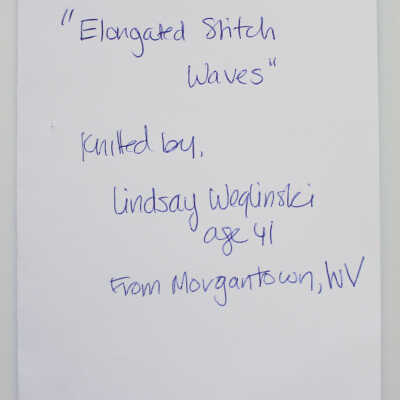 "Elongated Stitch
Waves"
Knitted by,
Lindsay Woglinski
age 41
From Morgantown, WV